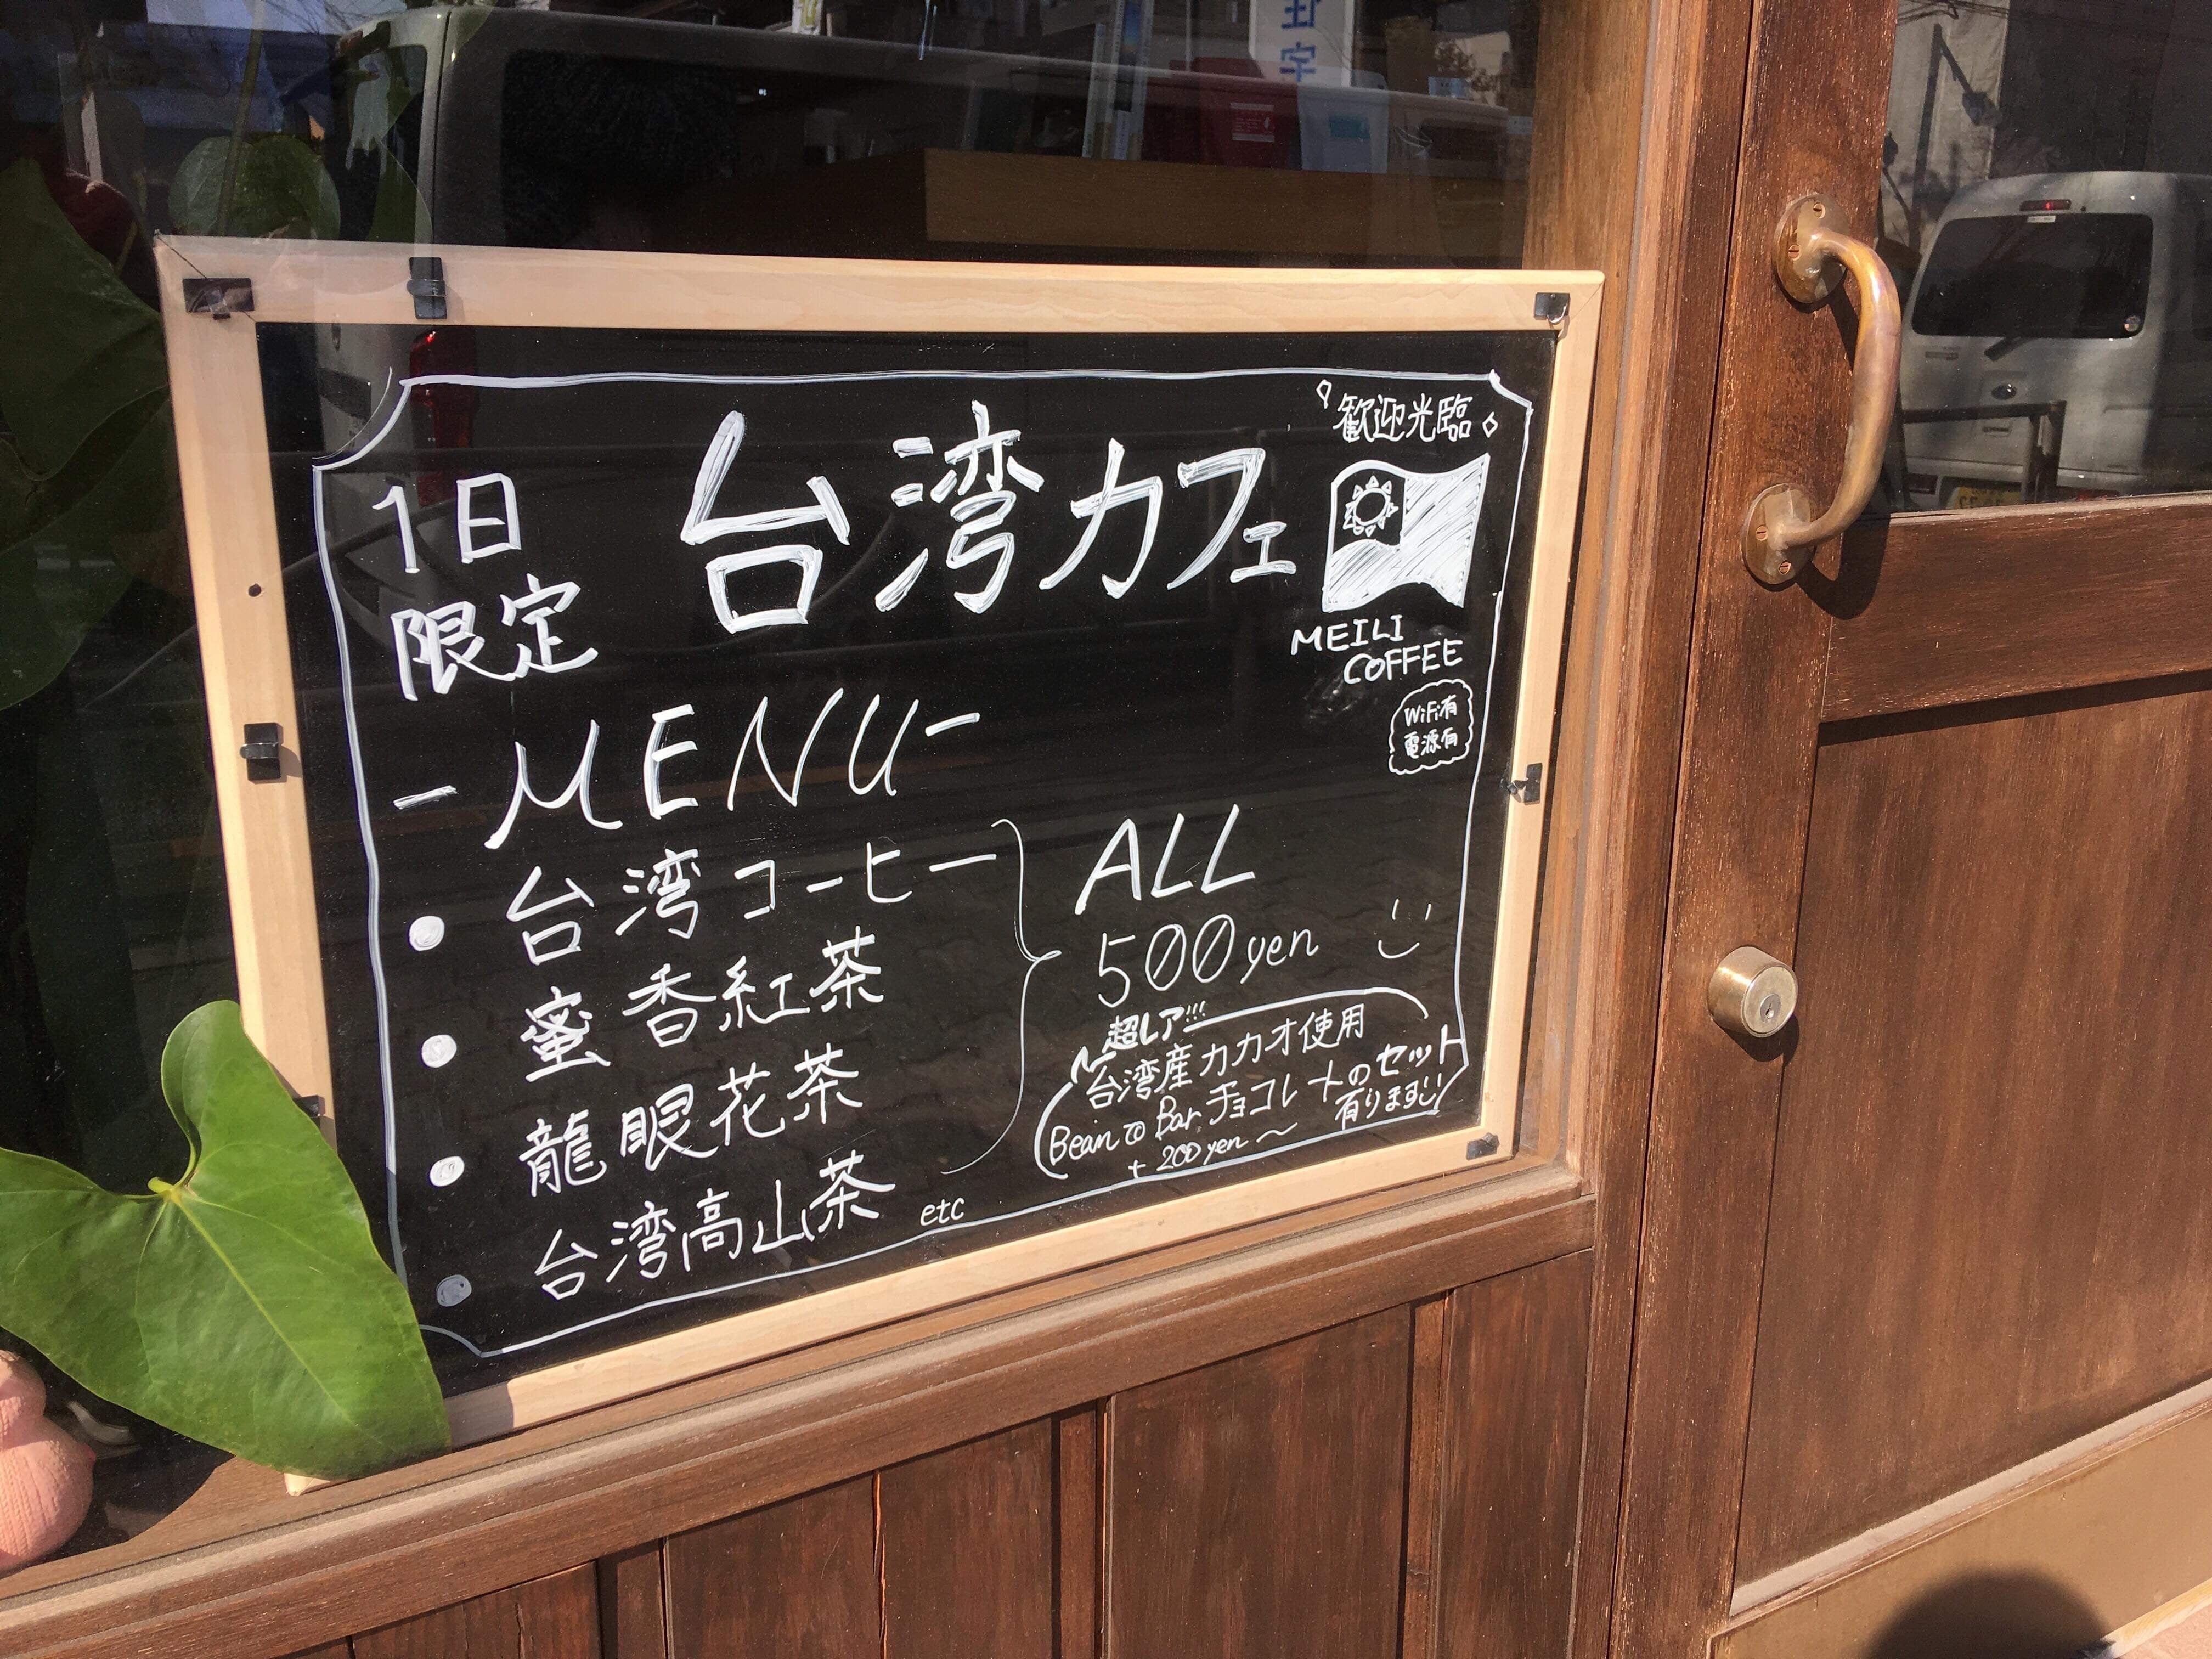 歓迎光臨
1日
限定
台湾カフェ
MEILI
COFFEE
WiFi有
電源有
-MENU-
• 台湾コーヒー
• 蜜香紅茶
• 龍眼花茶
• 台湾高山茶 etc
ALL
500yen
超レア!!!
台湾産カカオ使用
Bean to Bar チョコレートのセット
+200yen〜 有ります